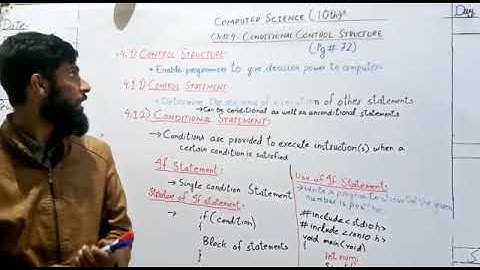 Date:
Day
COMPUTER SCIENCE (10th)
Ch#4: CONDITIONAL CONTROL STRUCTURE
(Pg # 72)
4.1) CONTROL STRUCTURE:
Enable programmers to give decision power to computer
4.1.1) CONTROL STATEMENT
Determine the sequence of execution of other statements
→ Can be conditional as well as unconditional statements
4.1.2) CONDITIONAL STATEMENT:
→ Conditions are provided to execute instruction(s) when a
certain condition is satisfied
If Statement:
→ Single condition Statement
Structure of If statement:
→ if (condition)
{
Block of statements
Use of If Statement:
Write a program to show that the given
number is positive
#include<stdio.h>
#include<conio.h>
void main(void)
{
int num;